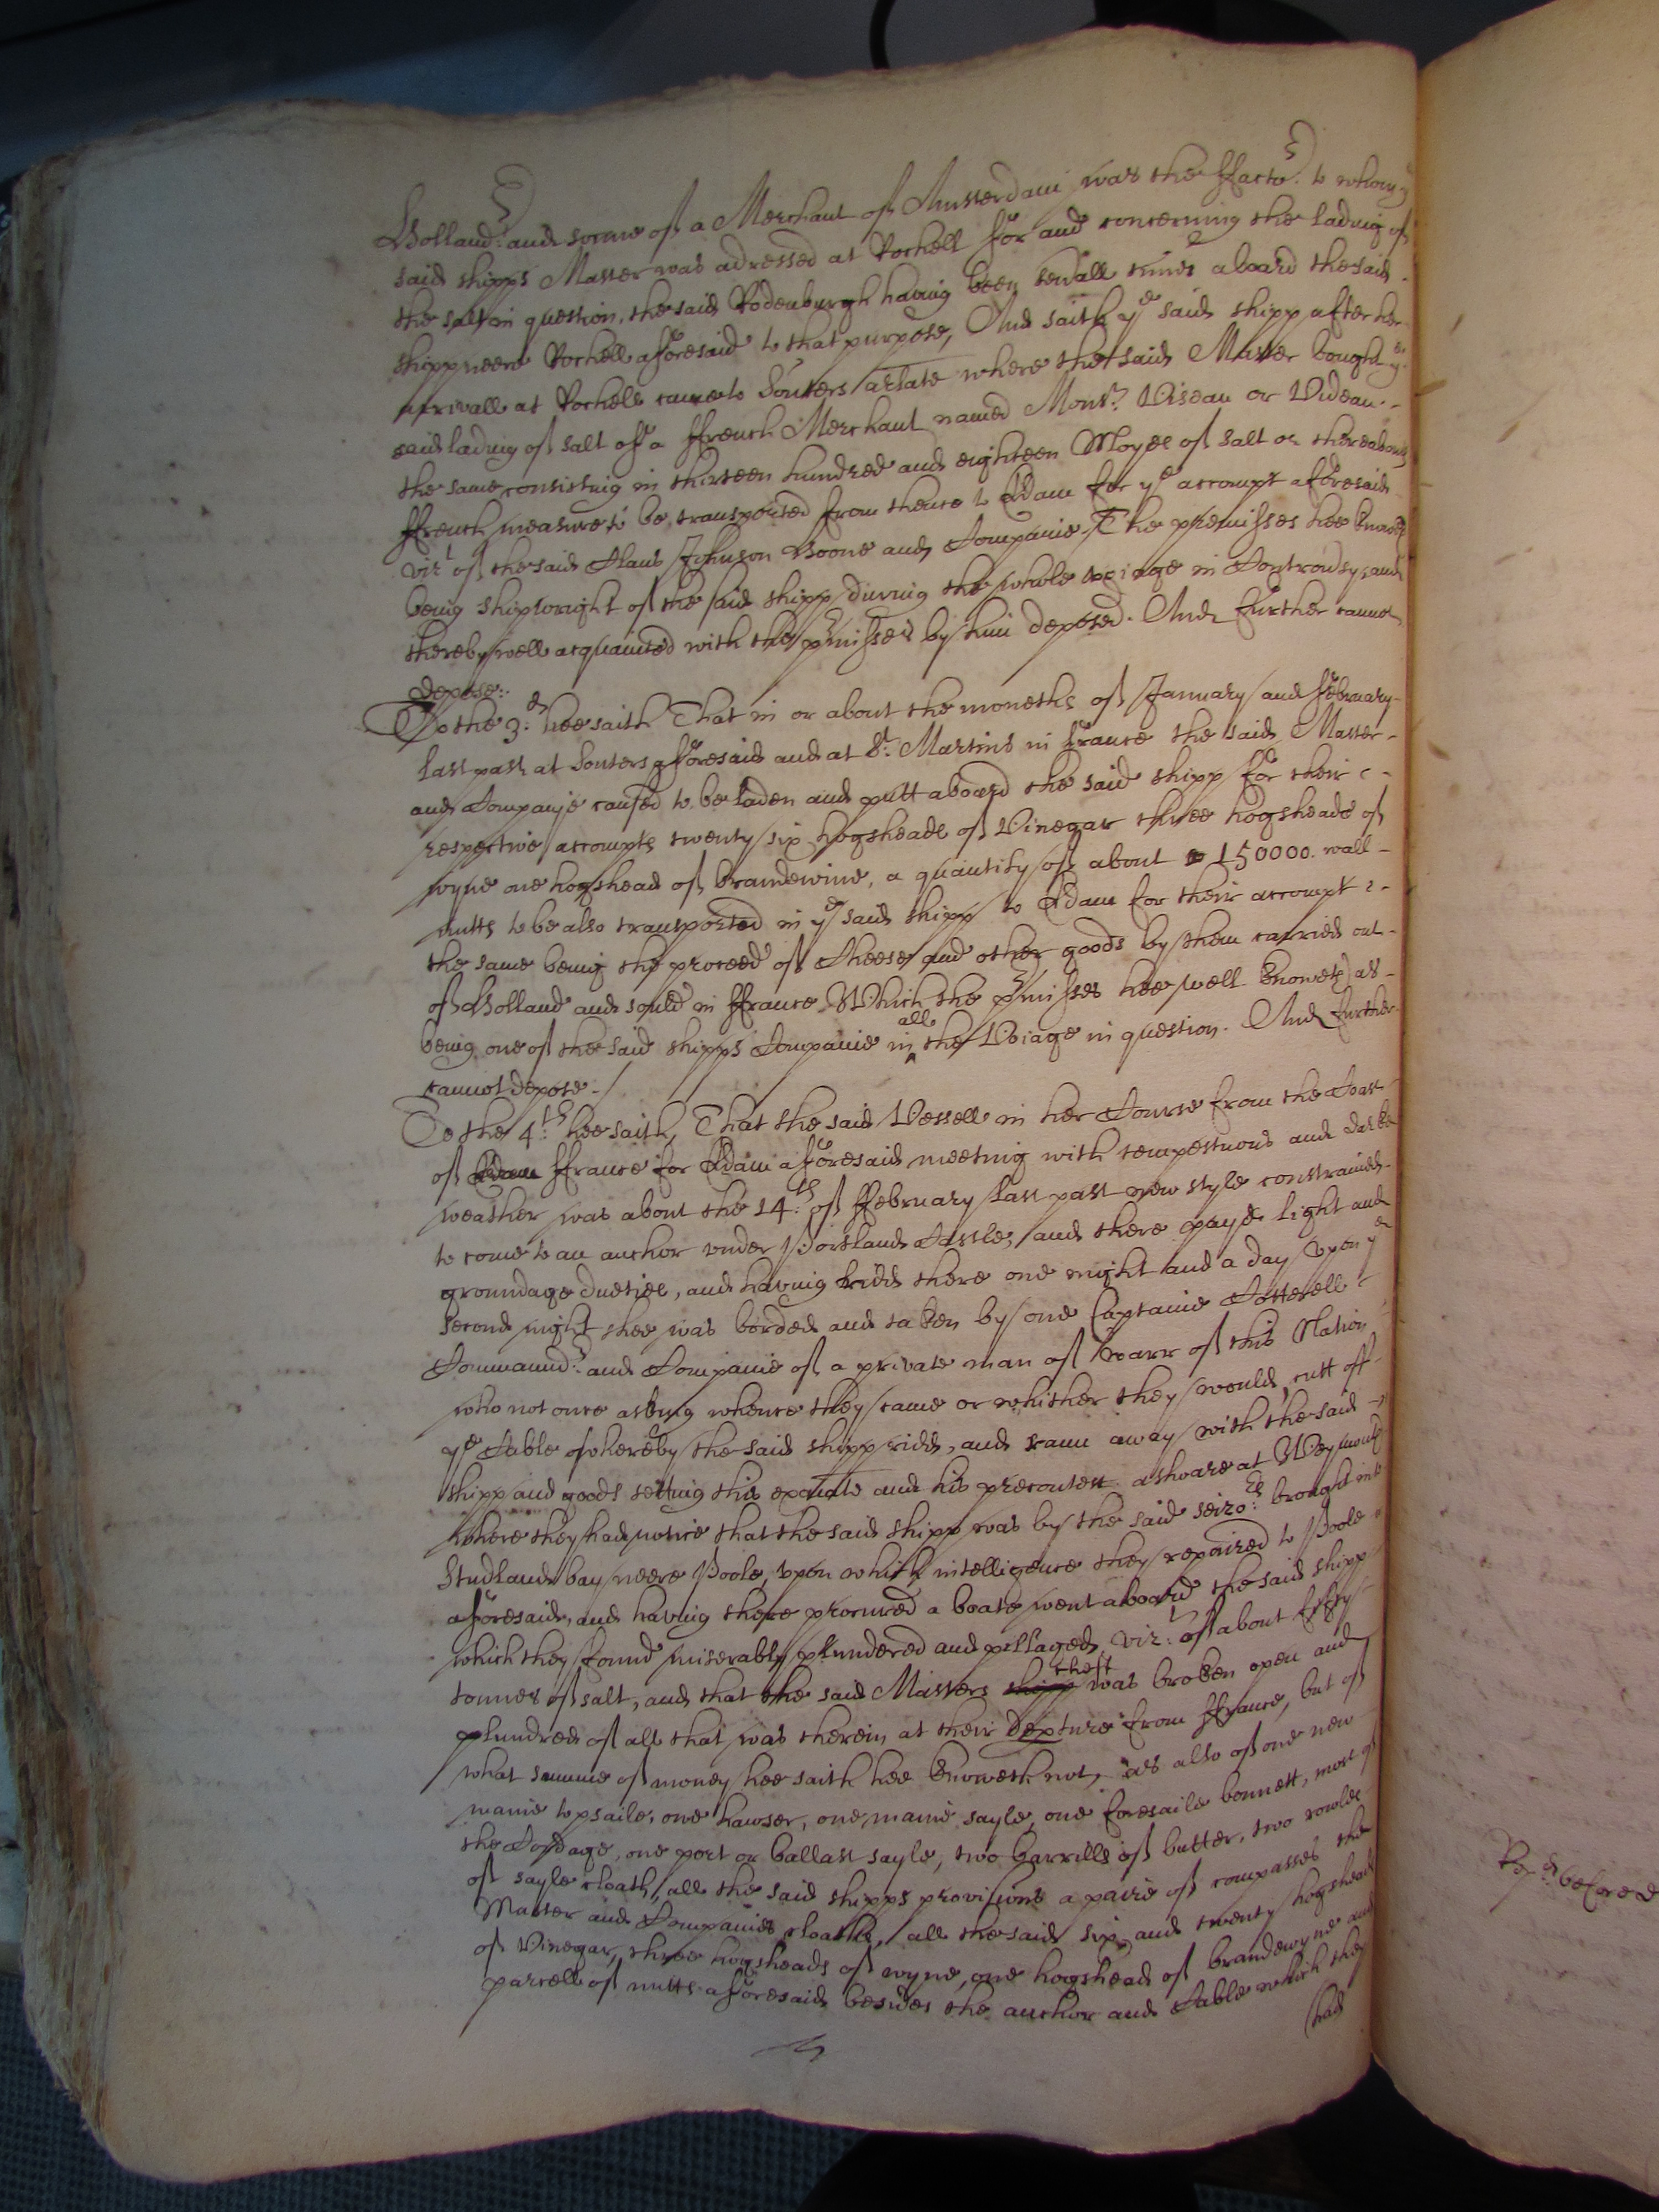 Holland: and sonne of a Merchant of Amsterdam was the ffacto:r to whom ye
said shipps Master was adressed at Rochell for and concerning the lading of
the salt in question, the said Rodenburgh having been severall times aboard the said
shipp neere Rochell aforesaid to that purpose, And saith ye said shipp after her
arrivall at Rochell came to where the said Master bought ye
said lading of salt of a ffrench Merchant named Monsr: Viseau or Videau
the same consisting in thirteen hundred and eighteen Moyee of salt or thereabouts
ffrench measure to be transported from thence to Edam for ye accompt aforesaid
vizt of the said Claus Johnson Boone and Companie. The premisses hee knoweth
being shipwright of the said shipp during the whole voiage in Controversy, and
thereby well acquainted with the pr:misses by him deposed. And further cannot
depose:
To the 3:d hee saith That in or about the moneths of January and ffebruary
last past at aforesaid and at St: Martins in france the said Master
and Companye caused to be laden and putt aboard the said shipp for their
respective accompts twenty six hogsheads of Vinegar three hogsheads of
wyne one hogshead of brandewine, a quantity of about 150000. wall
nutts to be also transported in ye said shipp to Edam for their accompt
the same being the proceed of Cheese and other goods by them carried out
of Holland and sould in ffrance Which the pr:misses hee well knoweth as
being one of the said shipps Companie in all the Voiage in question. And further
cannot depose.
To the 4:th hee saith, That the said Vessell in her Course from the Coast
of ffrance for Edam aforesaid meeting with tempestuous and darke
weather was about the 14:th of ffebruary last past new style constrained
to come to an anchor under Portland Castle, and there payde light and
groundage dueties, and having ridd there one night and a day upon ye
second night shee was borded and taken by one Captaine Cotterell
Command:r and Companie of a private man of warr of this Nation
who not once asking whence they came or whither they would, cutt off
ye Cable whereby the said shipp ridd, and rann away with the said
shipp and goods setting this examinate and his precontest ashoare at Weymouth
where they had notice that the said shipp was by the said seizo:rs brought into
Studland bay neere Poole, upon which intelligence they repaired to Poole
aforesaid, and having there procured a boate went aboard the said shipp
which they found miserably plundered and pillaged, vizt: of about fifty
tonnes of salt, and that the said Masters chest was broken open and
plundred of all that was therein at their depture from ffrance, but of
what summe of money hee saith hee knoweth not, as also of one new
maine topsaile, one hawser, one maine sayle, one foresaile bonnett, most of
the Cordage, one port or ballast sayle, two barrills of butter, two rowles
of sayle cloath, all the said shipps provisions a paire of compasses the
Master and Companies cloaths, all the said six and twenty hogsheads
of Vinegar, three hogsheads of wyne, one hogshead of brandewyne and
parcell of nutts aforesaid, besides the anchor and Cable which they
had
before